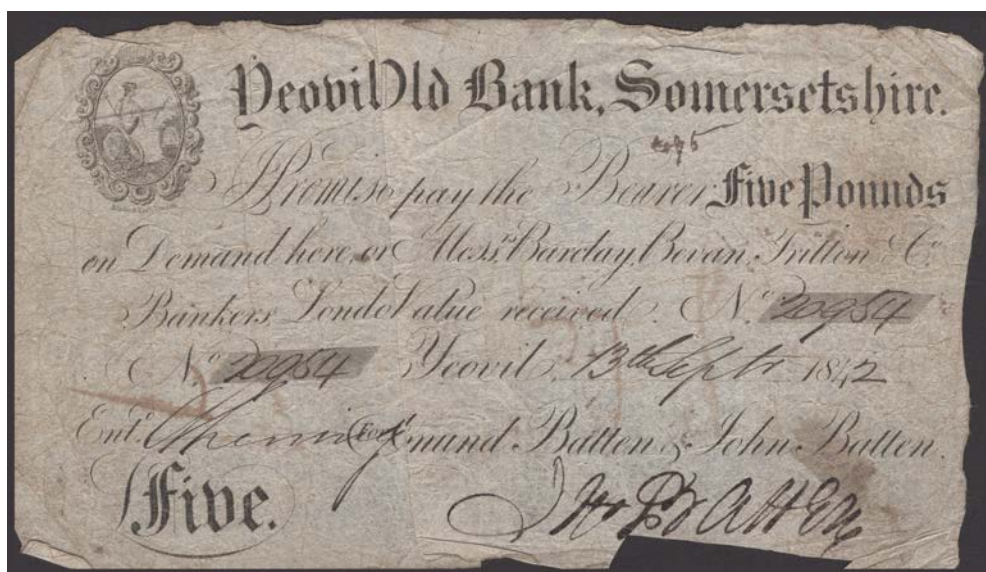 YeovilOld Bank, Somersetshire.
I Promise pay the Bearer Five Pounds
on Demand here, or Mess.rs Barclay, Bevan, Tritton & Co.
Bankers, LondoValue received. No. 20954
No. 20954 Yeovil, 13th Septr 1842
Ent.d For mund Batten & John Batten.
Five. Jno Batten